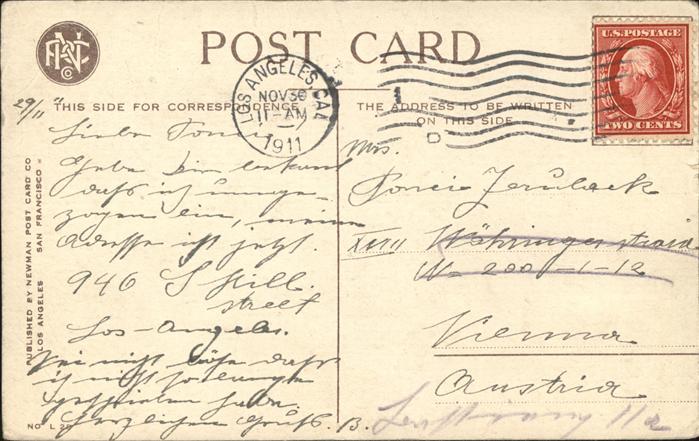 POST CARD
LOS ANGELES, CAL.
NOV 30
11-AM
1911
1
D
U.S. POSTAGE
TWO CENTS
29/11 11
THIS SIDE FOR CORRESPONDENCE
THE ADDRESS TO BE WRITTEN
ON THIS SIDE
PUBLISHED BY NEWMAN POST CARD CO
LOS ANGELES SAN FRANCISCO
Liebe
Gebe Dir bekannt
daß ich umge-
zogen bin, meine
Adresse ist jetzt.
946 S Hill.
street
Los-Angeles.
Sei nicht böse daß
ich nicht so lange
geschrieben habe.
Herzlichen Gruß. B.
NO. L 25
Mrs.
XVIII Währingerstrasse
No 200-1-12
Vienna
Austria
11a